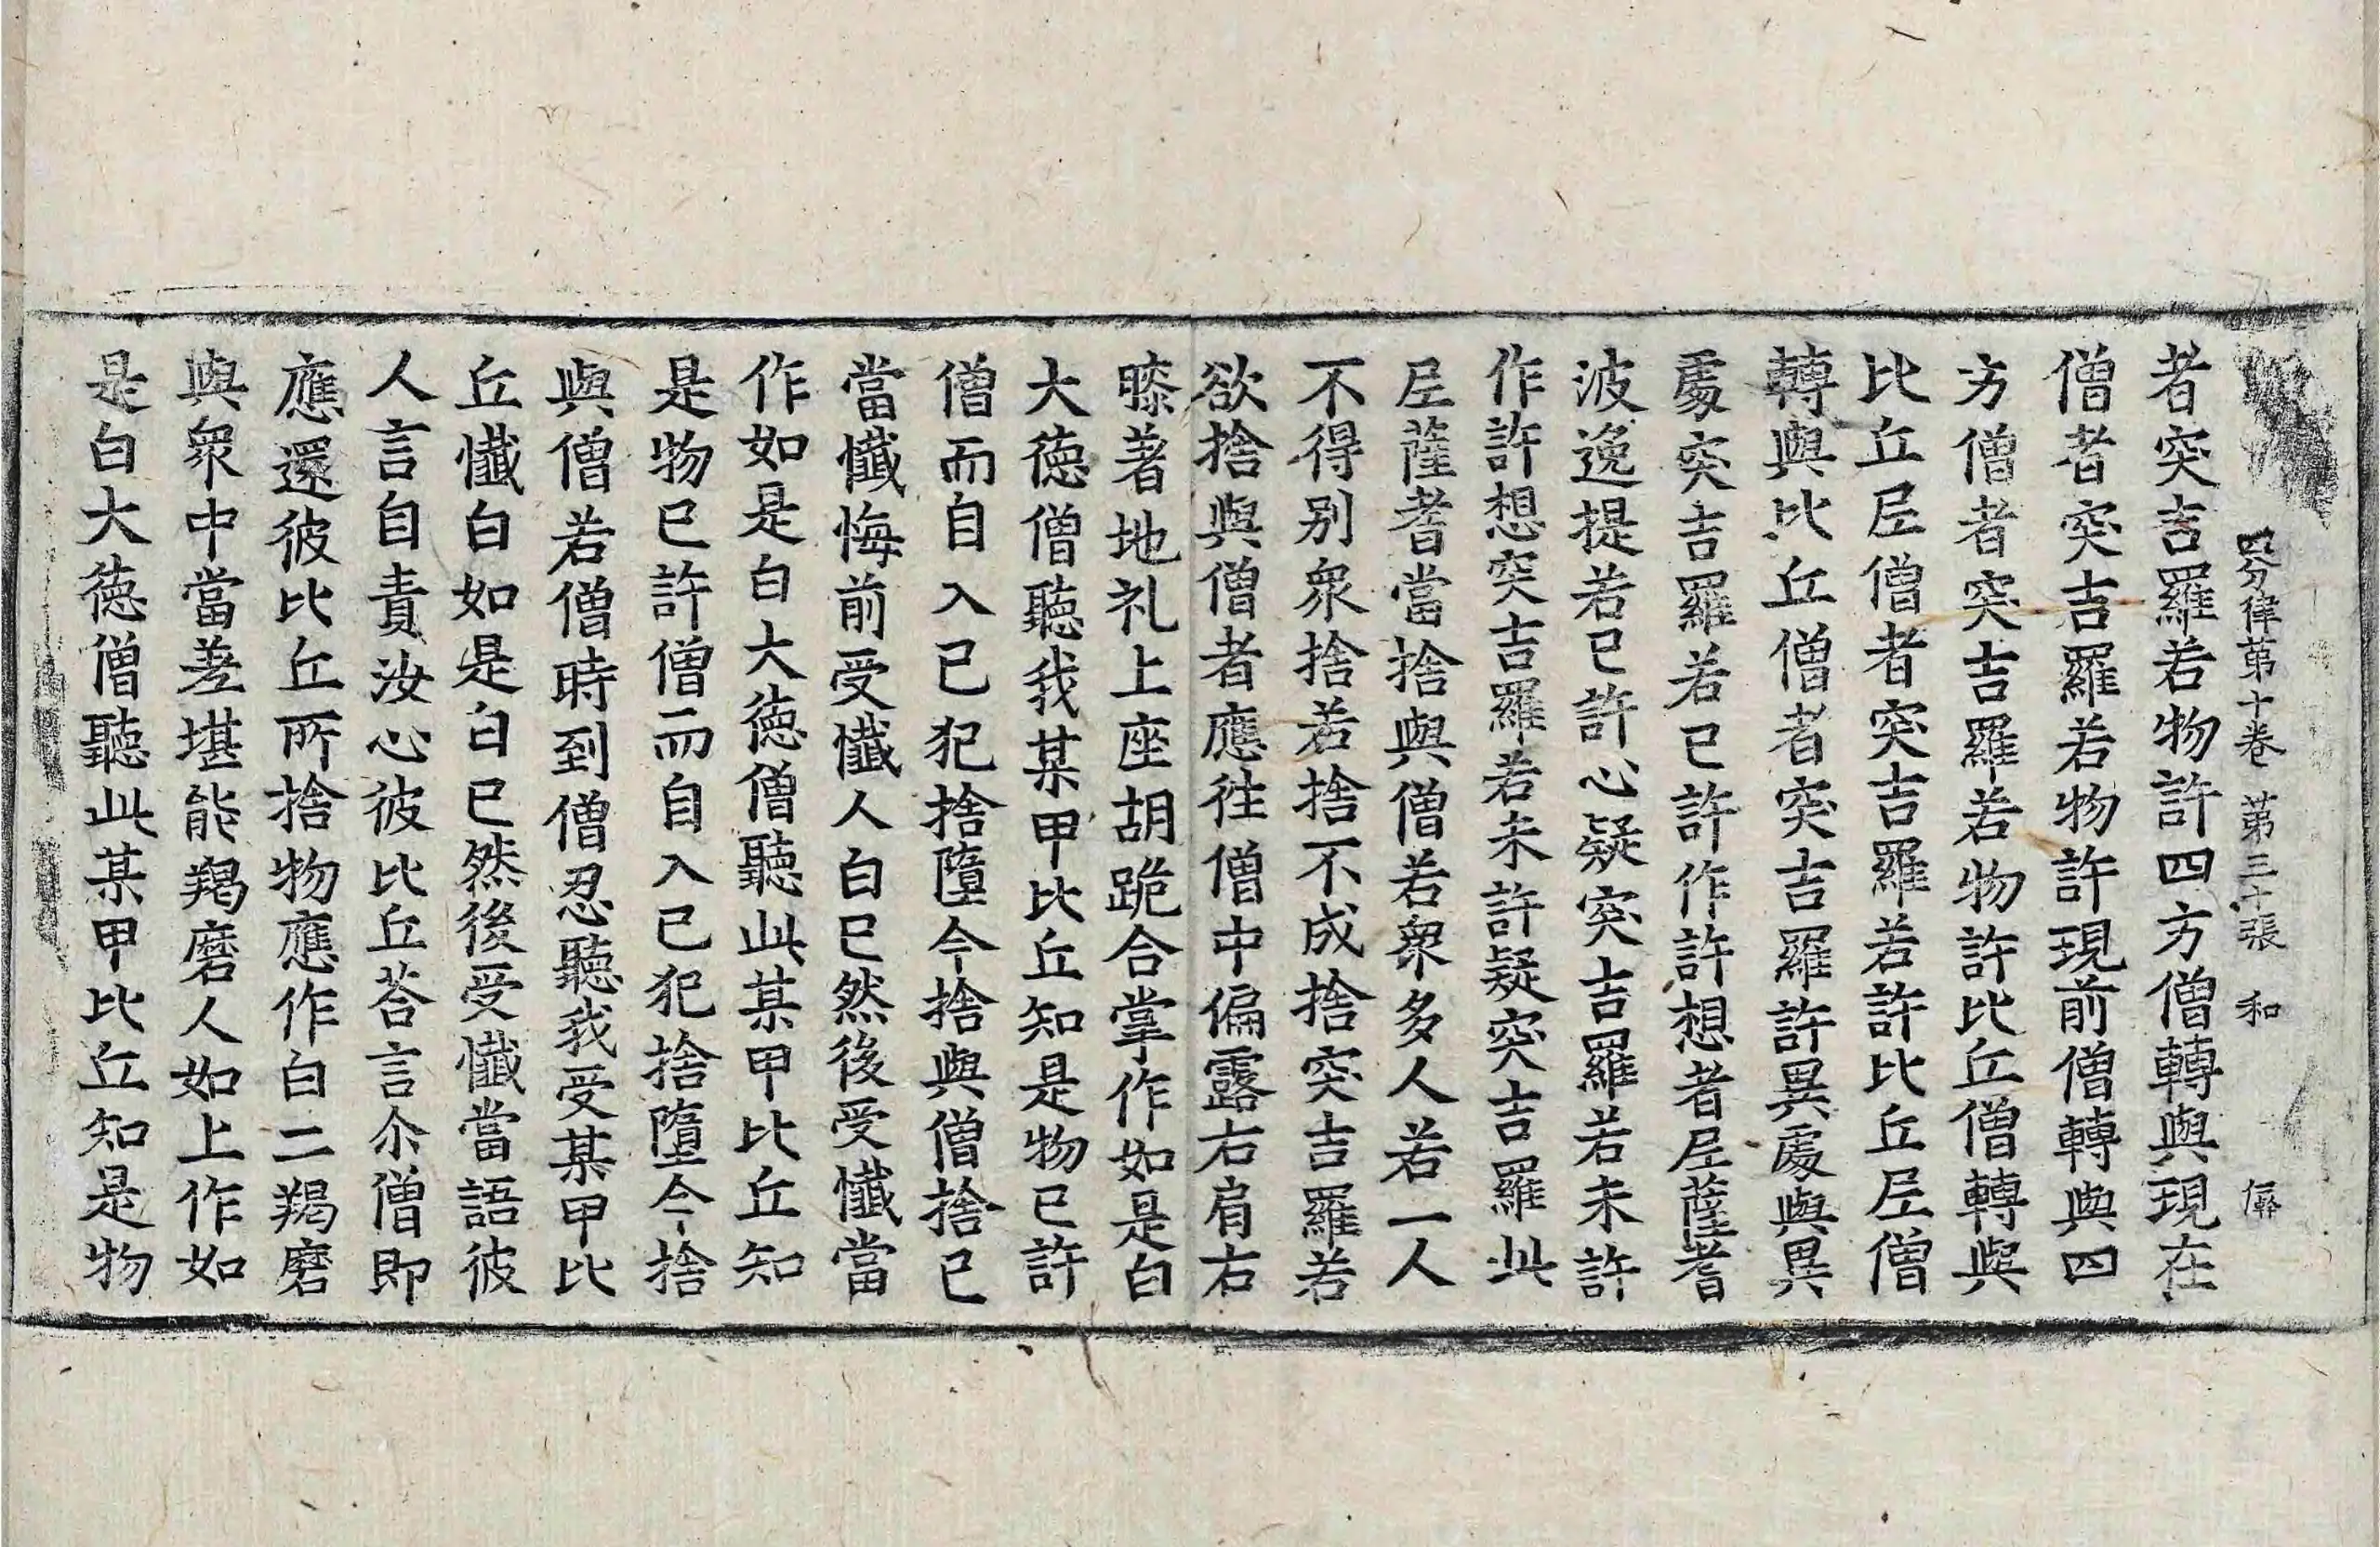 四分律第十卷 第三十張 和
者突吉羅若物許四方僧轉與現在
僧者突吉羅若物許現前僧轉與四
方僧者突吉羅若物許比丘僧轉與
比丘尼僧者突吉羅若許比丘尼僧
轉與比丘僧者突吉羅許異處與異
處突吉羅若已許作許想者尼薩耆
波逸提若已許心疑突吉羅若未許
作許想突吉羅若未許疑突吉羅此
尼薩耆當捨與僧若衆多人若一人
不得别衆捨若捨不成捨突吉羅若
欲捨與僧者應往僧中偏露右肩右
膝著地礼上座胡跪合掌作如是白
大德僧聽我某甲比丘知是物已許
僧而自入已犯捨墮今捨與僧捨已
當懺悔前受懺人白已然後受懺當
作如是白大德僧聽此某甲比丘知
是物已許僧而自入已犯捨墮今捨
與僧若僧時到僧忍聽我受某甲比
丘懺白如是白已然後受懺當語彼
人言自責汝心彼比丘荅言尒僧即
應還彼比丘所捨物應作白二羯磨
與衆中當差堪能羯磨人如上作如
是白大德僧聽此某甲比丘知是物